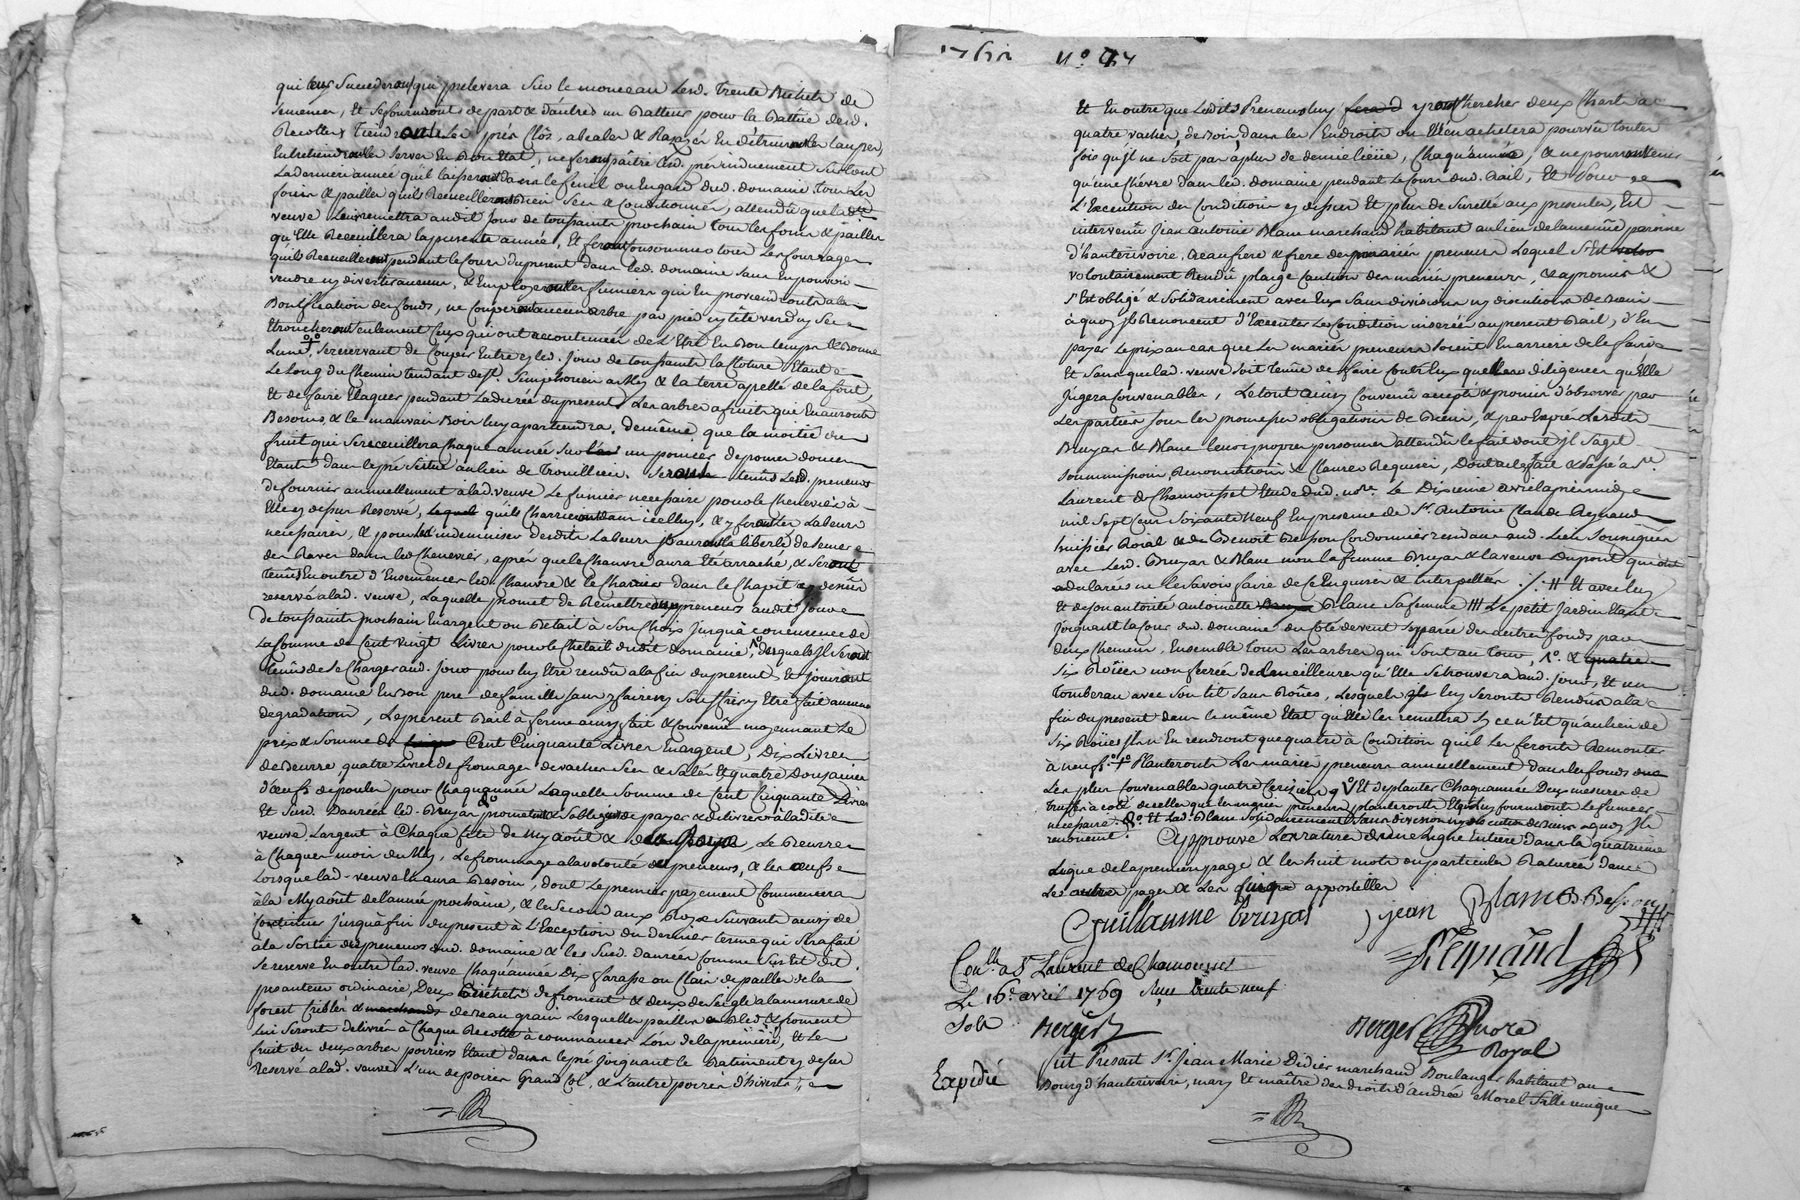 qui leur succederont qui prelevera sur le monceau lesd. trente Bichets de
semences, Et se fourniront de part & d'autre un Batteur pour la Battüe desd.
Recoltes Tiendront les prés Clôs, abealer & Razés En détruiront les taupes,
Entretiendront les serves En Bon Etat, ne feront paître lesd. prés nuitement surtout
La derniere année qu'ils laisseront dans le fenil ou Engard dud. domaine tous les
foins & pailles qu'ils Recueilleront Bien secs & Conditionnés, attendû que lad.
veuve Leur remettra audit jour de toussaints prochain tous les foins & pailles
qu'Elle Recueillera la presente année, Et feront Consommer tous les fourrages
qu'ils Recueilleront pendant le Cours du present dans led. domaine sans En pouvoir
vendre ny divertir aucuns, & Employeront les fumiers qui En proviendront à la
Bonification des fonds, ne Couperont aucun arbre par pied ny tête verd ny sec
Etroncheront seulement Ceux qui ont accoutumé de L'Etre En Bon temps & Bonne
Lune, se reservant de Couper Entre cy led. jour de toussaints la Cloture Etant
Le Long du Chemin tendant de St. Simphorien à & la terre appellé de la font,
Et de faire Elaguer pendant La durée du present Les arbres a fruits qui En auront
Besoins, & le mauvais Bois luy apartiendra. de même que la moitié du
fruit qui se receuillera Chaque année sur un pomier de pomes douces
Etant dans le pré scitué au lieu de Trouillere. Seront tenûs Lesd. preneurs
de fournir annuellement a lad. veuve Le fumier necessaire pour le Chenevier à
Elle cy dessus Reservé, qu'ils Charrieront dans icelluy, & y feront les Labeurs
necessaires, & pour les indemniser desdits Labeurs ils auront la liberté de semer
des Raves dans led. Chenevier, aprés que le Chanvre aura Eté arraché, & seront
tenûs En outre d'Ensemencer led. Chanvre & le Charrier dans le Chapit cy dessus
reservé a lad. veuve, Laquelle promet de Remettre aux preneurs audit jour
de toussaints prochain En argent ou Betail à son Choix jusqu'à Concurrence de
La somme de Cent vingt Livres pour le Chetail dudit domaine, desquels Ils seront
tenûs de se Charger aud. jour pour luy Etre rendu a la fin du present, Et jouiront
dud. domaine En Bon pere de famille sans y faire ny souffrir y Etre fait aucune
degradation, Le present Bail à ferme ainsy fait & Convenu moyennant Le
prix & Somme de Cent Cinquante Livres En argent, Dix Livres
de Beurre quatre Livres de fromages de vaches secs & salés Et quatre Douzaines
d'œufs de poules pour Chaqu'année Laquelle somme de Cent Cinquante Livres
Et susd. Danrées led. Bruyas promet & s'oblige de payer & delivrer à ladite
veuve L'argent à Chaque fête de My août & des Roys, Le Beurre
à Chaque mois de May, Le fromage a la volonté des preneurs, & les œufs
Lorsque lad. veuve En aura Besoin, dont Le premier payement Commencera
à la My août de l'année prochaine, & le Second aux Roys suivants ainsy de
Continuer jusqu'à fin du present à L'Exception du dernier terme qui sera fait
à la Sortie des preneurs dud. domaine & les susd. danrées Comme sus Est dit,
Se reserve En outre lad. veuve Chaqu'année Dix farasse ou Cluis de pailles de la
pesanteur ordinaire, Deux Bichets de froment & deux de Segle a la mesure de
forest Criblés & de Beau grain Lesquelles pailles Bled & froment
lui seront delivrés à Chaque Recolte à commancer Lors de la premiere, Et les
fruits des deux arbres poiriers Etant dans le pré joignant le Batiment cy dessus
Reservé a lad. veuve L'un de poires Grand Col, & L'autre poires d'hivert,
1769 N° 97
Et En outre que Lesdits Preneurs luy yront Chercher deux Charts à
quatre vaches, de Bois, dans les Endroits ou Elle En achetera pourvû toutes
fois qu'il ne soit pas a plus de demie lieüe, Chaqu'année, & ne pourront tenir
qu'une Chévre dans led. domaine pendant Le Cours dud. Bail, Et Pour
L'Execution des Conditions cy dessus Et plus de Sureté aux presentes, Est
intervenû Jean Antoine Blanc marchand habitant au lieu de la même paroisse
d'hauterivoire, Beaufrere & frere des mariés preneurs Lequel S'Est
volontairement Rendû plaige Caution des mariés preneurs, & a promis &
s'Est obligé & Solidairement avec Eux sans division ny discution de Biens
à quoy ils Renoncent d'Executer Les Conditions inserées au present Bail, d'En
payer Le prix au cas que Les mariés preneurs soient En arriere de le faire
Et sans que lad. veuve soit tenüe de faire Contr'Eux quelles diligences qu'Elle
Jugera Convenables, Le tout Ainsy Convenû accepté & promis d'observer par
Les parties sous les promesses obligations de Biens, & par Exprés Lesdits
Bruyas & Blanc leurs propres personnes attendû le fait dont jl s'agit
soummissions, Renonciations & Clauses Requises, Dont acte fait & Passé à St.
Laurent de Chamousset Etude dud. nore. Le Dixieme avril aprés midy
mil sept cens soixante Neuf En presence de Sr. Antoine Claude Reynaud
huissier Roial & de Benoit Besson Cordonnier residans aud. Lieu Soûsignés
avec Lesd. Bruyas & Blanc non la femme Bruyas & la veuve Dupont qui ont
declarées ne le Savoir faire de Ce Enquises & interpellées ./. # Et avec luy
Et de Son autorité Antoinette Blanc Sa femme ### Le petit Jardin Etant
Joignant la Cour dud. domaine du Coté de vent séparée des autres fonds par
deux Chemins, Ensemble tous Les arbres qui sont au tour, 1°. &
six Roües non ferrées de La meilleure qu'Elle se trouvera aud. jour, Et un
Tombereau avec Son lit Sans Roües, Lesquels ils luy seront Rendûs a la
fin du present dans le même Etat qu'Elle les remettra Sy ce n'Est qu'au lieu de
Six Roües jls n'En rendront que quatre à Condition qu'il Les feront Remonter
à neufs. Planteront Les mariés preneurs annuellement dans les fonds
Les plus Convenables quatre Cerisiers V° Et de planter Chaquannée Deux mesures de
truffes a coté de celles que les mêmes preneurs planteront Et qu'ils fourniront Le fumier
necessaire. 8° Et Lad. Blanc Solidairement sans division ny discution de Biens a quoy jls
renoncent. Approuvé La rature d'une Ligne Entiere dans la quatrieme
Ligne de la premiere page & les huit mots en particulier Raturés dans
Les autres pages & Les apostilles
Guillaume bruyas jean Blanc B Besson
Reynaud
Conllé. à St Laurent de Chamousset
Le 16e. avril 1769 Reçu trente neuf
sols Berger Berger Nore
Royal
Expedié fut Present Sr. Jean Marie Didier marchand Boulanger habitant au
Bourg d'hauterivoire, mary Et maître des droits d'andrée Morel Fille unique